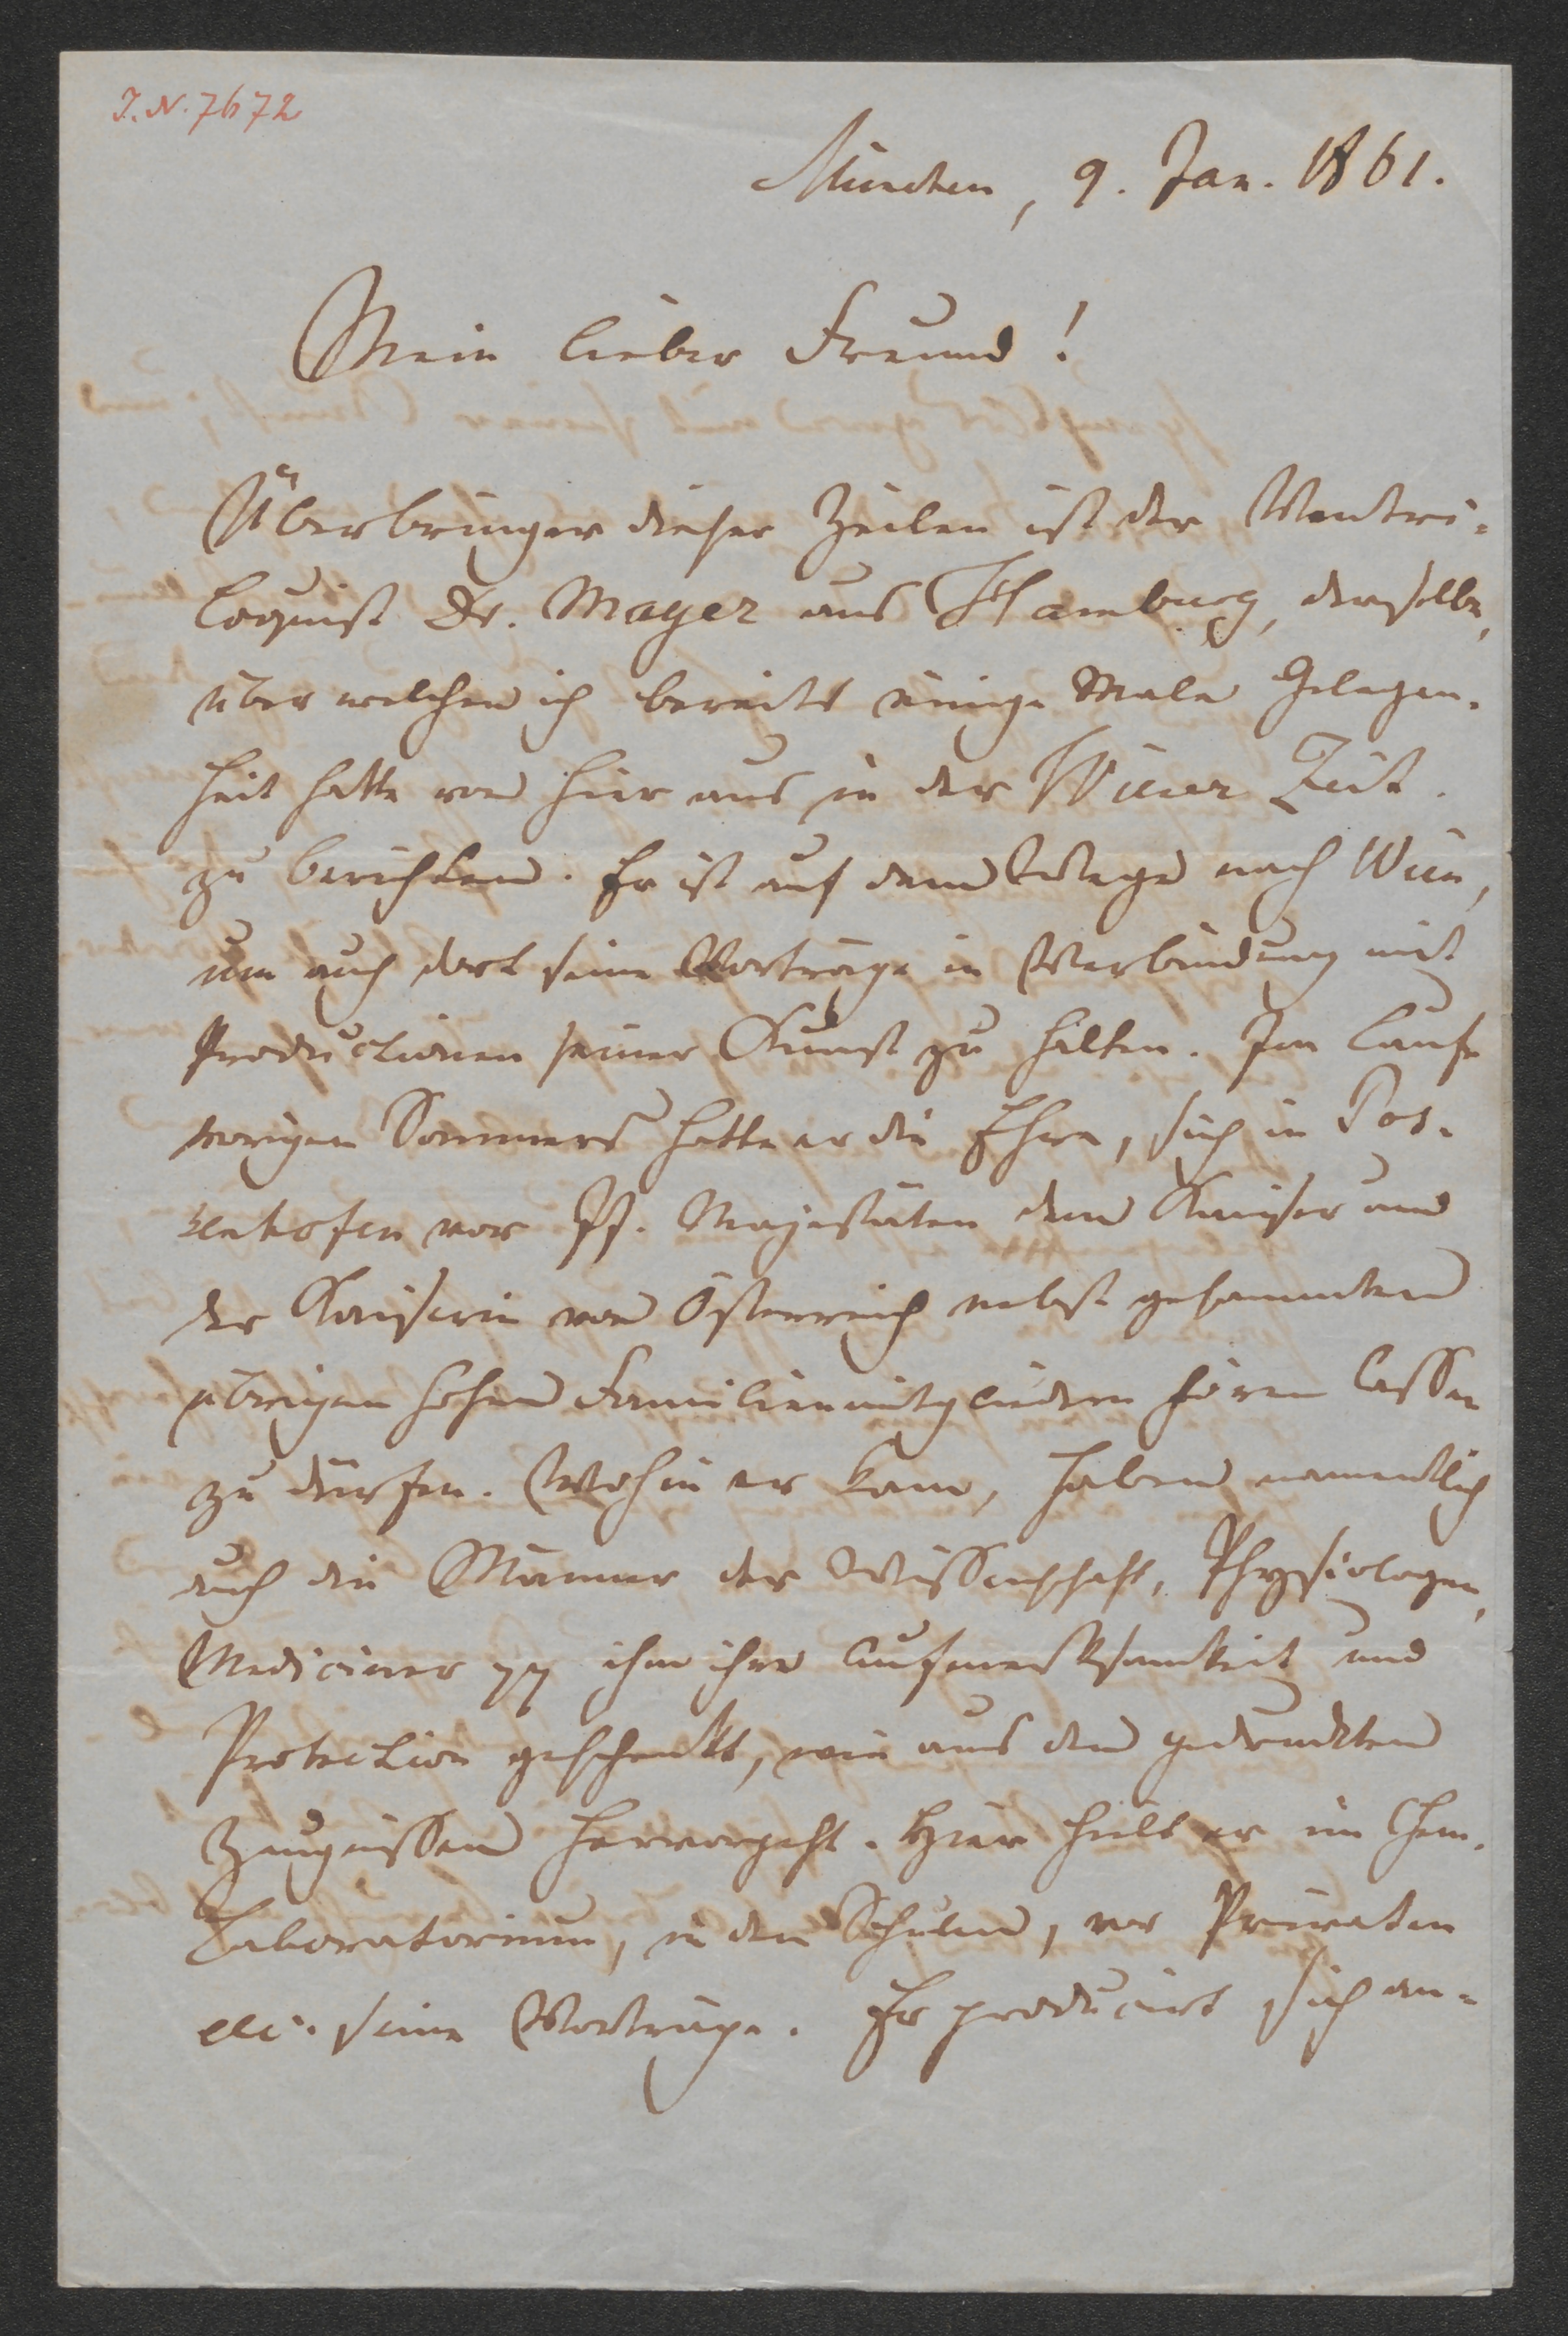 I. N. 7672
München, 9. Jan. 1861.
Mein lieber Freund!
Überbringer dieser Zeilen ist der Ventri-
loquist Dr. Mayer aus Hamburg, derselbe,
über welchen ich bereits einige Male Gelegen-
heit hatte von hier aus in der Wiener Zeit.
zu berichten. Er ist auf dem Wege nach Wien,
um auch dort seine Vorträge in Verbindung mit
Productionen seiner Kunst zu halten. Im Laufe
vorigen Sommers hatte er die Ehre, sich in Pos-
senhofen vor JJ. Majestäten dem Kaiser und
der Kaiserin von Österreich nebst gesammten
übrigen hohen Familienmitgliedern hören lassen
zu dürfen. Wohin er kam, haben namentlich
auch die Männer der Wissenschaft, Physiologen,
Mediciner pp ihm ihre Aufmerksamkeit und
Protection geschenkt, wie aus den gedruckten
Zeugnissen hervorgeht. Hier hielt er im chem.
Laboratorium, in den Schulen, vor Privaten
etc. seine Vorträge. Er producirt sich an-